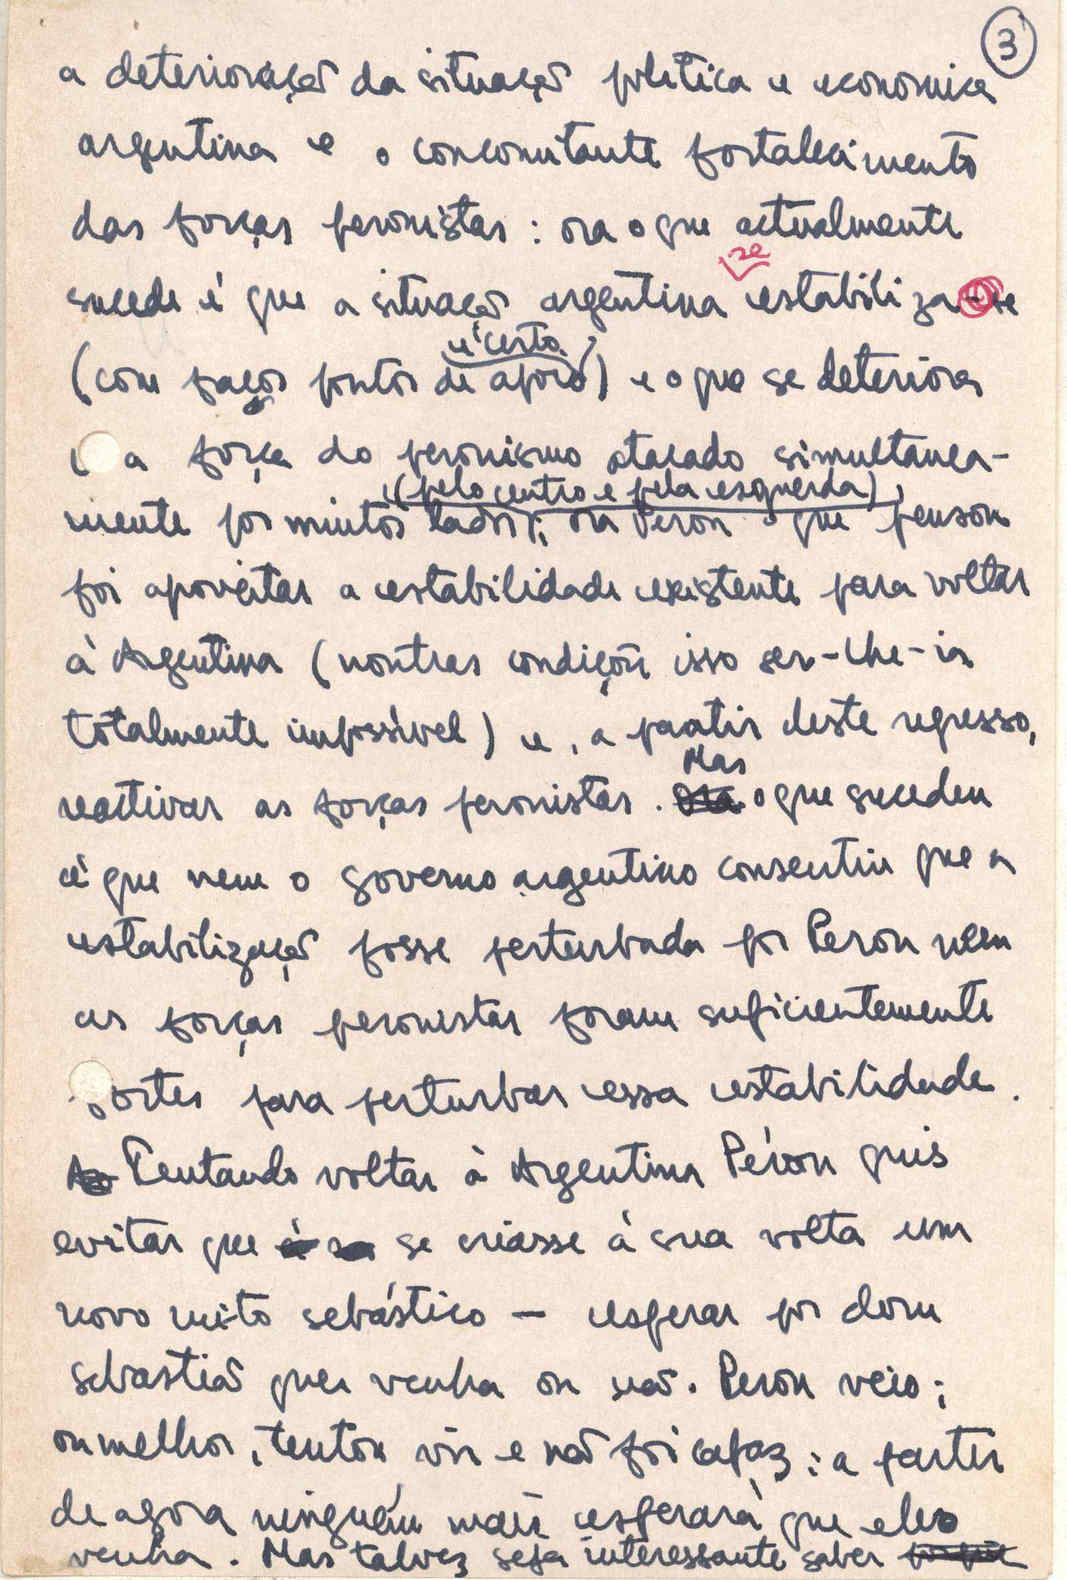 3
a deterioração da situação politica e economica
argentina e o concomitante fortalecimento
das forças peronistas : ora o que actualmente
se
sucede é que a situação argentina estabiliza-se
é certo
(com facos pontos de apoio) e o que se deteriora
é a força do peronismo atacado simultanea-
(pelo centro e pela esquerda)
mente por muitos lados; ora Peron o que pensou
foi aproveitar a estabilidade existente para voltar
à Argentina (noutras condições isso ser-lhe-ia
totalmente impossível) e, a partir deste regresso,
Mas
reactivar as forças peronistas. Ora o que sucedeu
é que nem o governo argentino consentiu que a
estabilização fosse perturbada por Peron nem
as forças peronistas foram suficientemente
fortes para perturbar essa estabilidade.
Tentando voltar à Argentina Péron quis
evitar que se criasse à sua volta um
novo mito sebástico — esperar por dom
sebastião quer venha ou não. Peron veio;
ou melhor, tentou vir e não foi capaz; a partir
de agora ninguém mais esperará que ele
venha. Mas talvez seja interessante saber